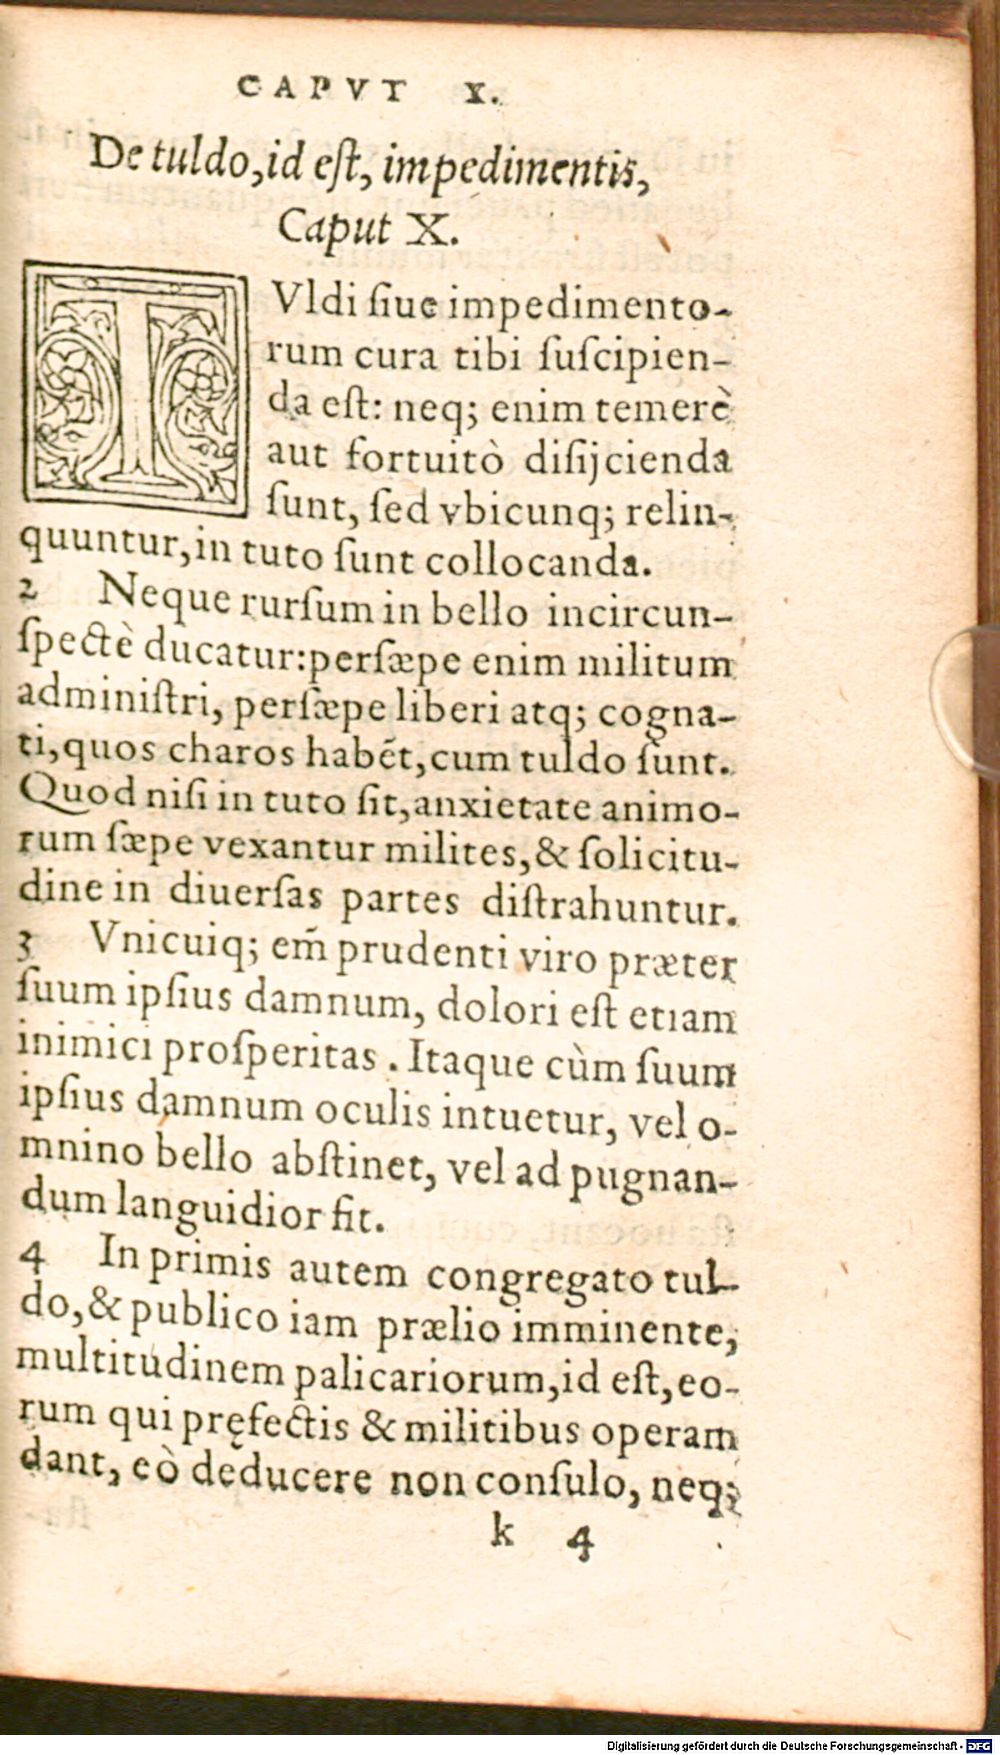 CAPVT X.
De tuldo, id eſt, impedimentis,
Caput X.
TVldi ſiue impedimento-
rum cura tibi ſuſcipien-
da eſt: neq; enim temerè
aut fortuitò diſijcienda
ſunt, ſed vbicunq; relin-
quuntur, in tuto ſunt collocanda.
2 Neque rurſum in bello incircun-
ſpectè ducatur: perſæpe enim militum
adminiſtri, perſæpe liberi atq; cogna-
ti, quos charos habẽt, cum tuldo ſunt.
Quod niſi in tuto ſit, anxietate animo-
rum ſæpe vexantur milites, & ſolicitu-
dine in diuerſas partes diſtrahuntur.
3 Vnicuiq; em̃ prudenti viro præter
ſuum ipſius damnum, dolori eſt etiam
inimici proſperitas. Itaque cùm ſuum
ipſius damnum oculis intuetur, vel o-
mnino bello abſtinet, vel ad pugnan-
dum languidior fit.
4 In primis autem congregato tul-
do, & publico iam prælio imminente,
multitudinem palicariorum, id eſt, eo-
rum qui pręfectis & militibus operam
dant, eò deducere non conſulo, neq;
k 4
Digitalisierung gefördert durch die Deutsche Forschungsgemeinschaft - DFG